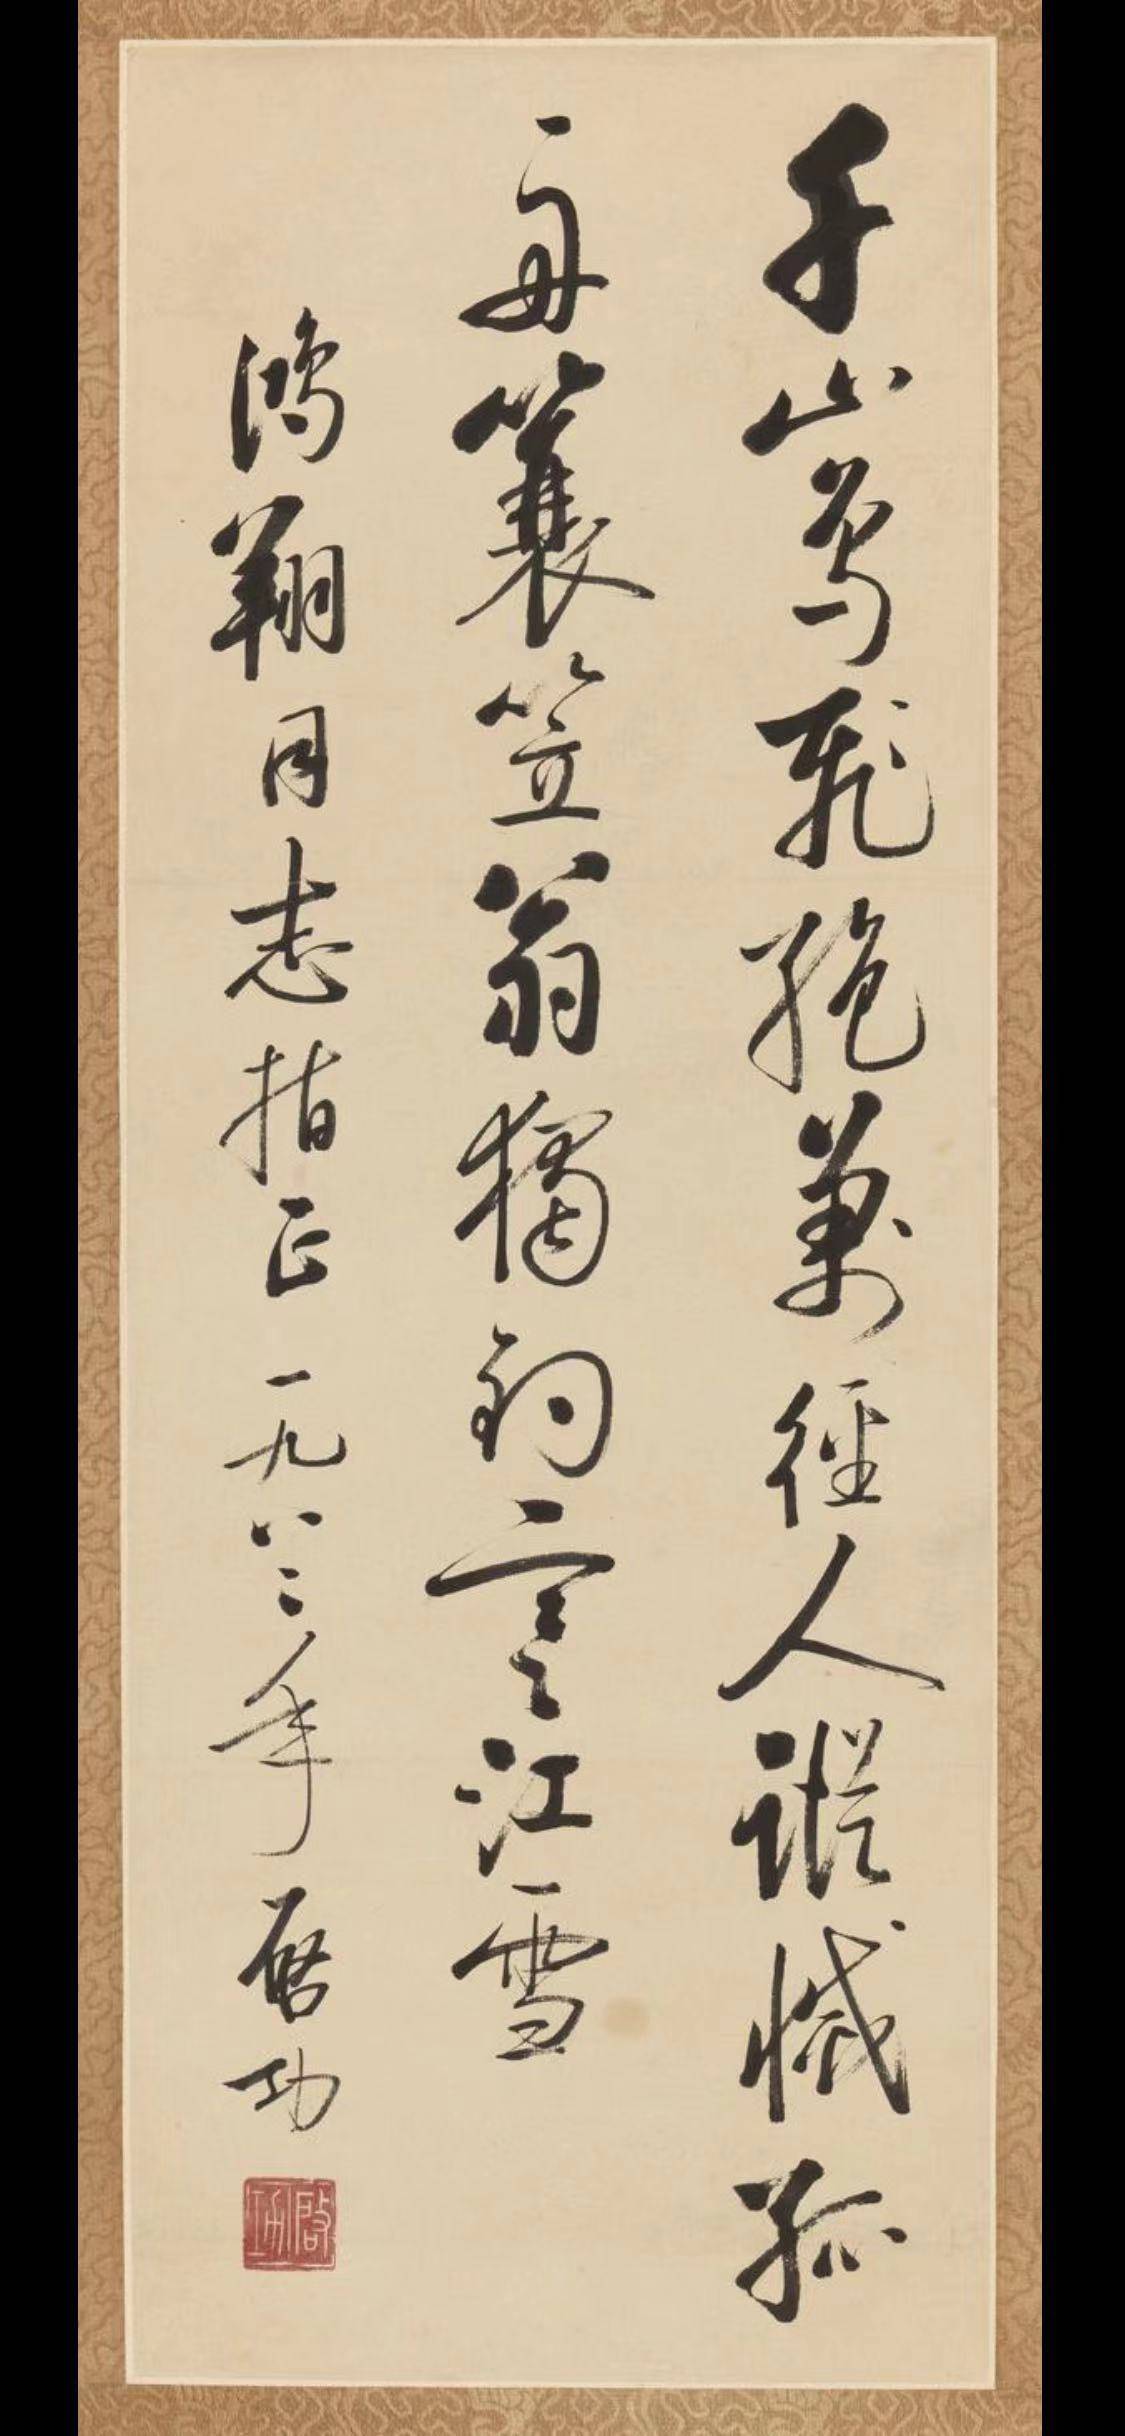 千山鳥飛絕萬徑人蹤滅孤
舟簑笠翁獨釣寒江雪
鴻翔同志指正 一九八二年 啓功
啓功